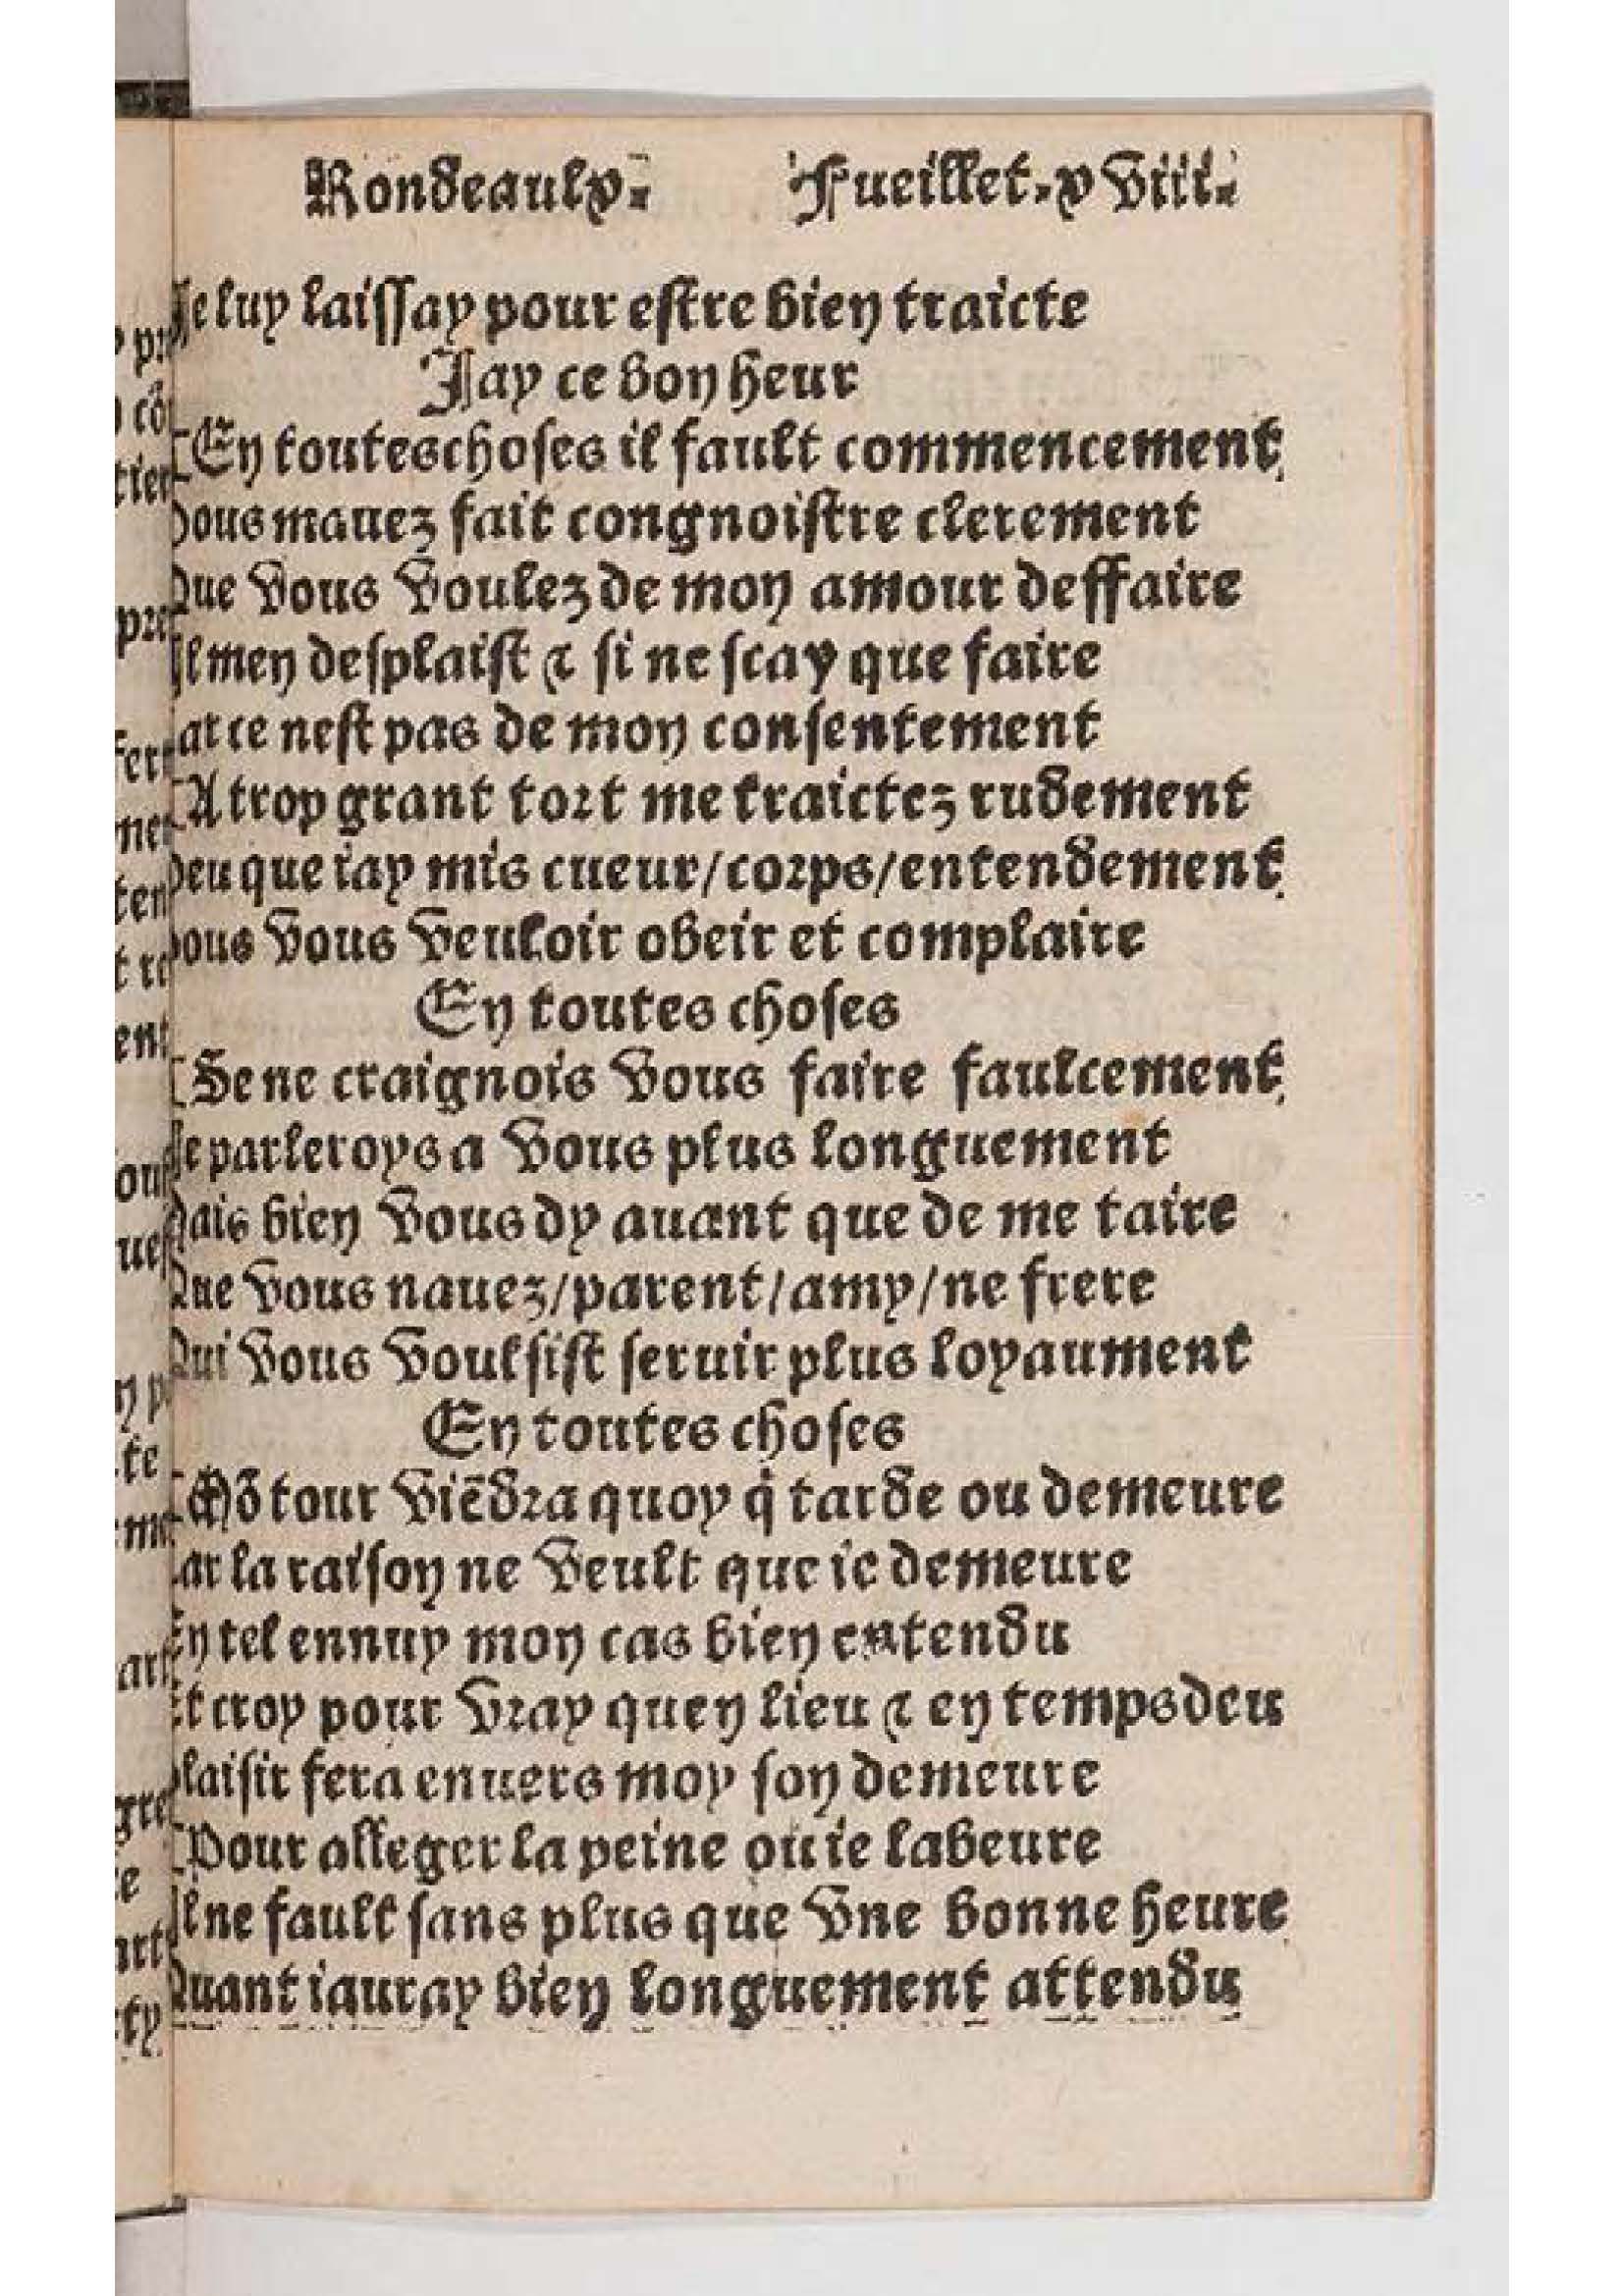 Rondeaulx. Fueillet. x viii.
Je luy laissay pour estre bien traicte
Jay ce bon heur
En touteschoses il fault commencement
vous mauez fait congnoistre clerement
Que vous voulez de mon amour deffaire
Il men desplaist & si ne scay que faire
ar ce nest pas de mon consentement
A trop grant tort me traictez rudement
veu que iay mis cueur/corps/entendement
vous vous veuloir obeir et complaire
En toutes choses
Se ne craignois vous faire faulcement
Je parleroys a vous plus longuement
Mais bien vous dy auant que de me taire
Que vous nauez/parent/amy/ne frere
Qui vous voulsist seruir plus loyaument
En toutes choses
Mõ tour viẽdra quoy q̃ tarde ou demeure
ar la raison ne veult que ie demeure
En tel ennuy mon cas bien entendu
Et croy pour vray quen lieu & en temps deu
plaisir fera enuers moy son demeure
Pour alleger la peine ou ie labeure
Il ne fault sans plus que vne bonne heure
Quant iauray bien longuement attendu